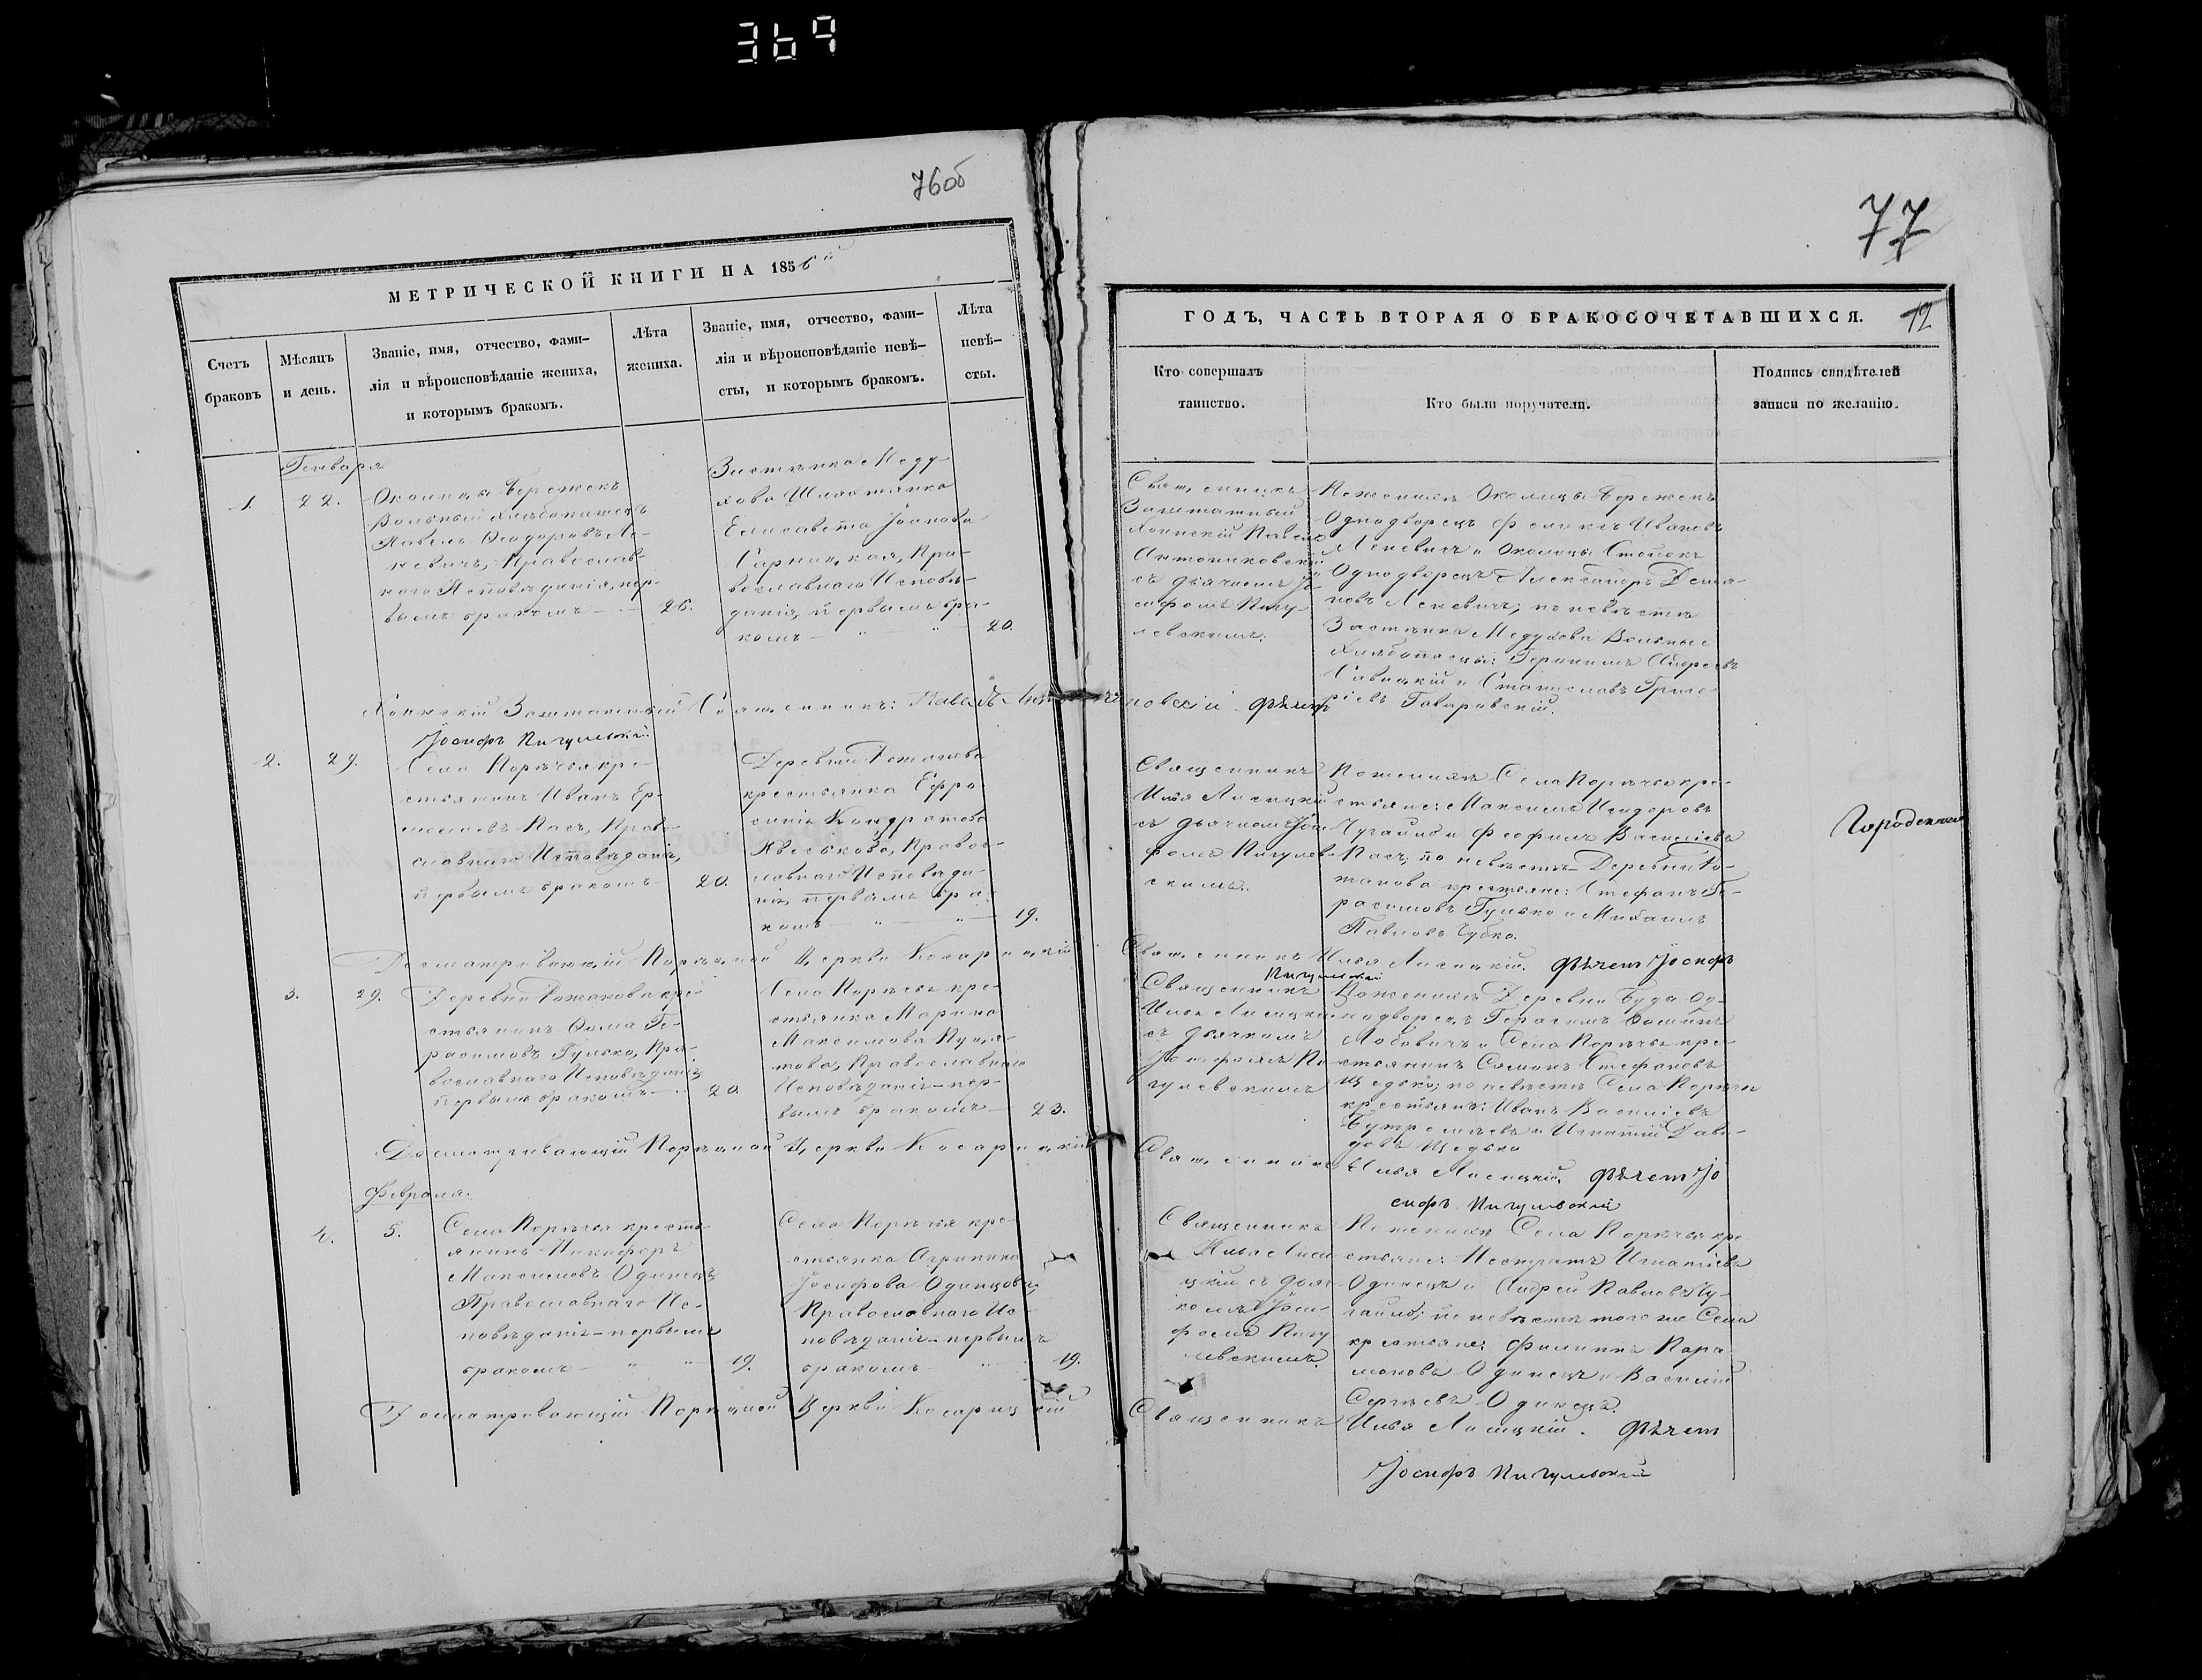 369
76об
77
МЕТРИЧЕСКОЙ КНИГИ НА 1856й
Счетъ
браковъ
Мѣсяцъ
и день.
Званіе, имя, отчество, фами-
лія и вѣроисповѣданіе жениха,
и которымъ бракомъ.
Лѣта
жениха.
Званіе, имя, отчество, фами-
лія и вѣроисповѣданіе невѣ-
сты, и которымъ бракомъ.
Лѣта
невѣ-
сты.
ГОДЪ, ЧАСТЬ ВТОРАЯ О БРАКОСОЧЕТАВШИХСЯ.
12
Кто совершалъ
таинство.
Кто были поручители.
Подпись свидѣтелей
записи по желанію.
Генваря
1.
22.
Околицы Бережекъ
Вольный хлѣбопашецъ
Павелъ Ѳеодоровъ Ле-
невичъ, Православ-
наго Исповѣданія, пер-
вымъ бракомъ
26.
Застѣнка Меду-
хова Шляхтянка
Елисавета Іоанова
Сарнацкая, Пра-
вославнаго Исповѣ-
данія, первымъ бра-
комъ
20.
Священникъ
Заштатный
Хоинскій Павелъ
съ дьячкомъ Іо-
сифомъ Пигу-
левскимъ.
По женихѣ Околицы Бережекъ
Однодворецъ Феликсъ Ивановъ
Леневичъ и Околицы
Однодворецъ Александръ
Леневичъ; по невѣстѣ
Застѣнка Медухова Вольные
Хлѣбопашцы: Геронимъ Андреевъ
Савицкій и Станиславъ Григо-
ріевъ
Хоинскій Заштатный Священникъ: Павелъ
Іосифъ Пигулевскій
2.
29.
Села Порѣчья кре-
стьянинъ Иванъ Ер-
молаевъ Пасъ, Право-
славнаго Исповѣданія,
первымъ бракомъ
20.
Деревни Рожанова
крестьянка Ефро-
синія Кондратова
Православ-
наго Исповѣда-
нія, первымъ бра-
комъ
19.
Священникъ
Илья Лисицкій
съ дьячкомъ Іоси-
фомъ Пигулев-
скимъ.
По женихѣ Села Порѣчья кре-
стьяне: Максимъ
и Феофилъ Василіевъ
Пасъ; по невѣстѣ Деревни Ро-
жанова крестьяне: Стефанъ Ге-
расимовъ Гулько и Михаилъ
Павловъ Чубко.
Досматривающій Порѣцкой Церкви Косарицкій Священникъ Илья Лисицкій. Дьячекъ Іосифъ
Пигулевскій
3.
29.
Деревни Рожанова кре-
стьянинъ Ѳома Ге-
расимовъ Гулько, Пра-
вославнаго Исповѣданія
первымъ бракомъ
20.
Села Порѣчья кре-
стьянка Марина
Максимова
Православнаго
Исповѣданія пер-
вымъ бракомъ
23.
Священникъ
Илья Лисицкій
съ дьячкомъ
Іосифомъ Пи-
гулевскимъ
По женихѣ Деревни Буда Од-
нодворецъ Герасимъ
и Села Порѣчья кре-
стьянинъ Симонъ Стефановъ
Щедько; по невѣстѣ Села Порѣчья
крестьяне: Иванъ Василіевъ
и Игнатій Дави-
довъ Щедько
Досматривающій Порѣцкой Церкви Косарицкій Священникъ Илья Лисицкій. Дьячекъ Іо
сифъ Пигулевскій
Февраля.
4.
5.
Села Порѣчья кресть-
янинъ Никифоръ
Максимовъ Одинецъ
Православнаго Ис-
повѣданія первымъ
бракомъ
19.
Села Порѣчья кре-
стьянка Агрипина
Іосифова Одинцова,
Православнаго Ис-
повѣданія первымъ
бракомъ
19.
Священникъ
Илья Лиси-
цкій съ дьяч-
комъ Іоси-
фомъ Пигу-
левскимъ.
По женихѣ Села Порѣчья кре-
стьяне: Игнатіевъ
Одинецъ и Андрей Павловъ
по невѣстѣ того же Села
крестьяне: Филиппъ Пара-
моновъ Одинецъ и Василій
Сергѣевъ Одинецъ.
Досматривающій Порѣцкой Церкви Косарицкій Священникъ Илья Лисицкій. Дьячекъ
Іосифъ Пигулевскій